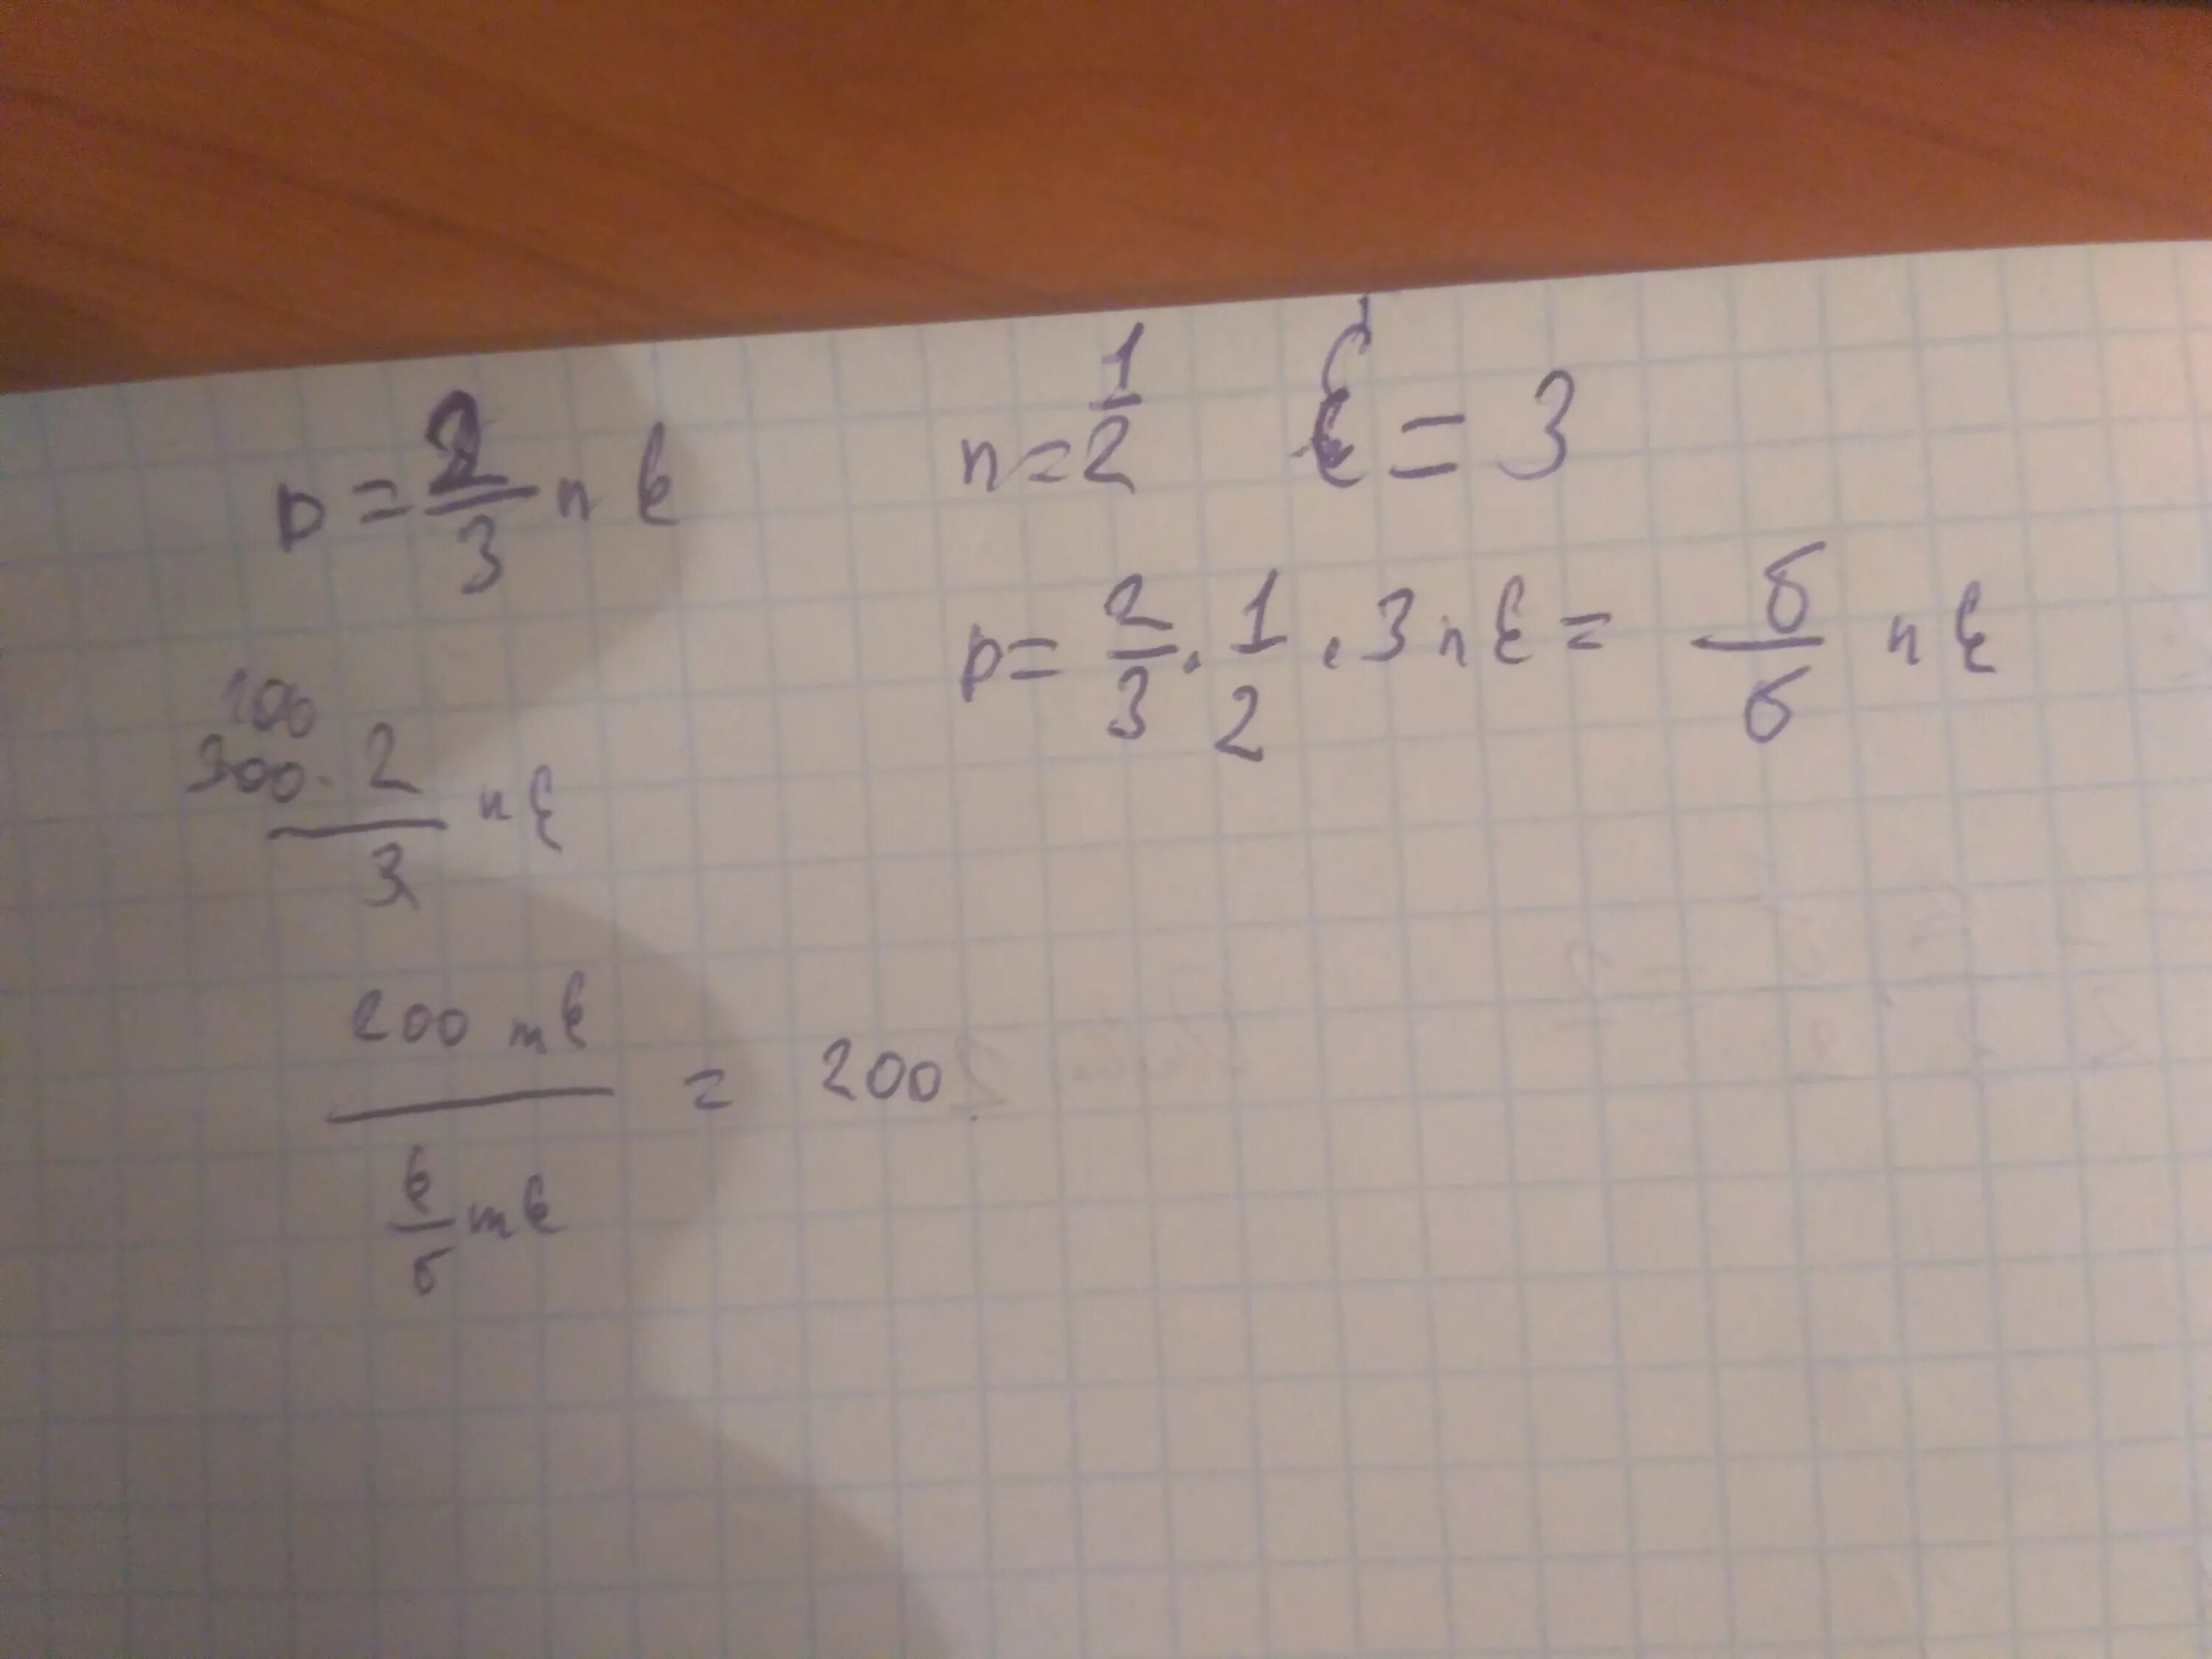 p = 2/3 n E
n = 1/2 E = 3
p = 2/3 · 1/2 · 3 n E = 6/6 n E
100
300 · 2 / 3 n E
200 m E / 6/6 m E = 200